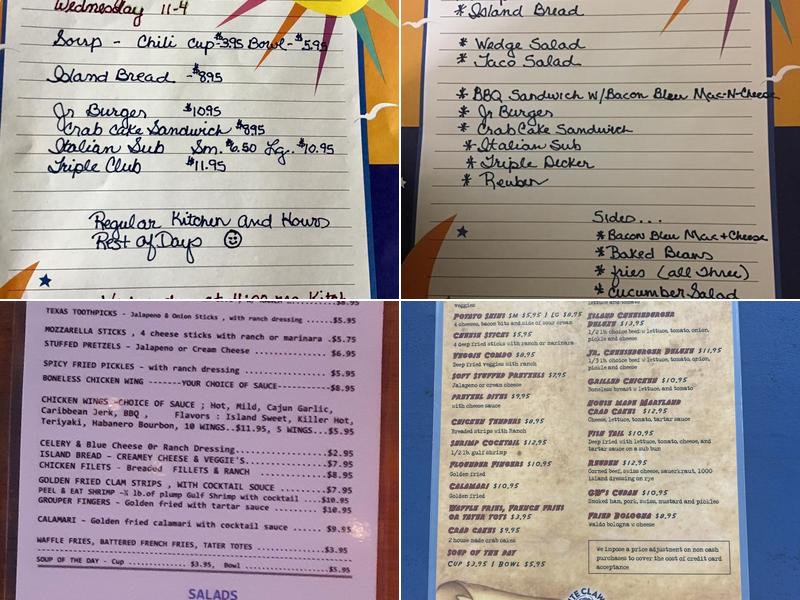 Wednesday 11-4
Soup - Chili Cup-$3.95 Bowl-$5.95
Island Bread - $8.95
Jr Burger $10.95
Crab Cake Sandwich $8.95
Italian Sub Sm. $6.50 Lg. $10.95
Triple Club $11.95
Regular Kitchen and Hours
Rest of Days
* Island Bread
* Wedge Salad
* Taco Salad
* BBQ Sandwich w/Bacon Bleu Mac-N-Cheese
* Jr Burgers
* Crab Cake Sandwich
* Italian Sub
* Triple Decker
* Reuben
Sides...
* Bacon Bleu Mac + Cheese
* Baked Beans
* fries (all three)
* Cucumber Salad
TEXAS TOOTHPICKS - Jalapeno & Onion Sticks , with ranch dressing .....$5.95
MOZZARELLA STICKS , 4 cheese sticks with ranch or marinara .$5.75
STUFFED PRETZELS - Jalapeno or Cream Cheese ................ $6.95
SPICY FRIED PICKLES - with ranch dressing ..................$5.95
BONELESS CHICKEN WING -------YOUR CHOICE OF SAUCE-----------$8.95
CHICKEN WINGS -CHOICE OF SAUCE : Hot, Mild, Cajun Garlic,
Caribbean Jerk, BBQ , Flavors : Island Sweet, Killer Hot,
Teriyaki, Habanero Bourbon, 10 WINGS..$11.95, 5 WINGS...$5.95
CELERY & Blue Cheese Or Ranch Dressing......................$2.95
ISLAND BREAD - CREAMEY CHEESE & VEGGIE'S....................$7.95
CHICKEN FILETS - Breaded FILLETS & RANCH ...................$8.95
GOLDEN FRIED CLAM STRIPS , WITH COCKTAIL SOUCE .............$7.95
PEEL & EAT SHRIMP -½ lb.of plump Gulf Shrimp with cocktail ....$10.95
GROUPER FINGERS - Golden fried with tartar sauce ...........$10.95
CALAMARI - Golden fried calamari with cocktail sauce .......$9.95
WAFFLE FRIES, BATTERED FRENCH FRIES, TATER TOTES ...........$3.95
SOUP OF THE DAY - Cup ................$3.95, Bowl .........$5.95
SALADS
veggies
POTATO SKINS SM $5.95 | LG $8.95
4 cheeses, bacon bits and side of sour cream
CHEESE STICKS $5.95
4 deep fried sticks with ranch or marinara
VEGGIE COMBO $8.95
Deep fried veggies with ranch
SOFT STUFFED PRETZELS $7.95
Jalapeno or cream cheese
PRETZEL BITES $9.95
with cheese sauce
CHICKEN TENDERS $8.95
Breaded strips with Ranch
SHRIMP COCKTAIL $12.95
1/2 lb. gulf shrimp
FLOUNDER FINGERS $10.95
Golden fried
CALAMARI $10.95
Golden fried
WAFFLE FRIES, FRENCH FRIES
OR TATER TOTS $3.95
CRAB CAKES $9.95
2 house made crab cakes
SOUP OF THE DAY
CUP $3.95 | BOWL $5.95
lettuce, tomato, onion,
ISLAND CHEESEBURGER
DELUXE $13.95
1/2 lb choice beef w lettuce, tomato, onion,
pickle and cheese
JR. CHEESEBURGER DELUXE $11.95
1/3 lb choice beef w lettuce, tomato, onion,
pickle and cheese
GRILLED CHICKEN $10.95
Boneless breast w lettuce, and tomato
HOUSE MADE MARYLAND
CRAB CAKES $12.95
Lettuce, tomato, tartar sauce
FISH TAIL $10.95
Deep fried with lettuce, tomato, cheese, and
tartar sauce on a sub bun
REUBEN $12.95
Corned beef, swiss cheese, sauerkraut, 1000
island dressing on rye
GW'S CUBAN $10.95
Smoked ham, pork, swiss, mustard and pickles
FRIED BOLOGNA $8.95
Waldo bologna w cheese
We impose a price adjustment on non cash
purchases to cover the cost of credit card
acceptance